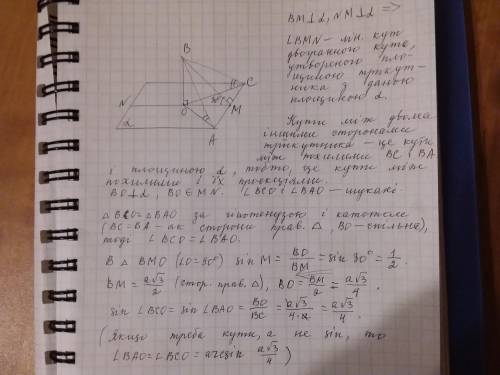 BM⊥α, NM⊥α =>
∠BMN – лін. кут
двогранного кута,
утвореного пло-
щиною трикут-
ника з даною
площиною α.
B
C
N
O
M
α
A
Кути між двома
іншими сторонами
трикутника – це кути
між похилими BC і BA
і площиною α, тобто, це кути між
похилими і їх проекціями.
BO⊥α, BO∈MN. ∠BCO і ∠BAO – шукані
△BCO=△BAO за гіпотенузою і катетом
(BC=BA – як сторони прав. △, BO – спільна),
тоді ∠BCO=∠BAO.
В △BMO (∠O=90°) sin M = BO/BM = sin 30° = 1/2.
BM = a√3/2 (стор. прав. △), BO = BM/2 = a√3/4.
sin ∠BCO = sin ∠BAO = BO/BC = a√3/4·a = a√3/4.
(Якщо треба кути, а не sin, то
∠BAO=∠BCO = arcsin a√3/4)